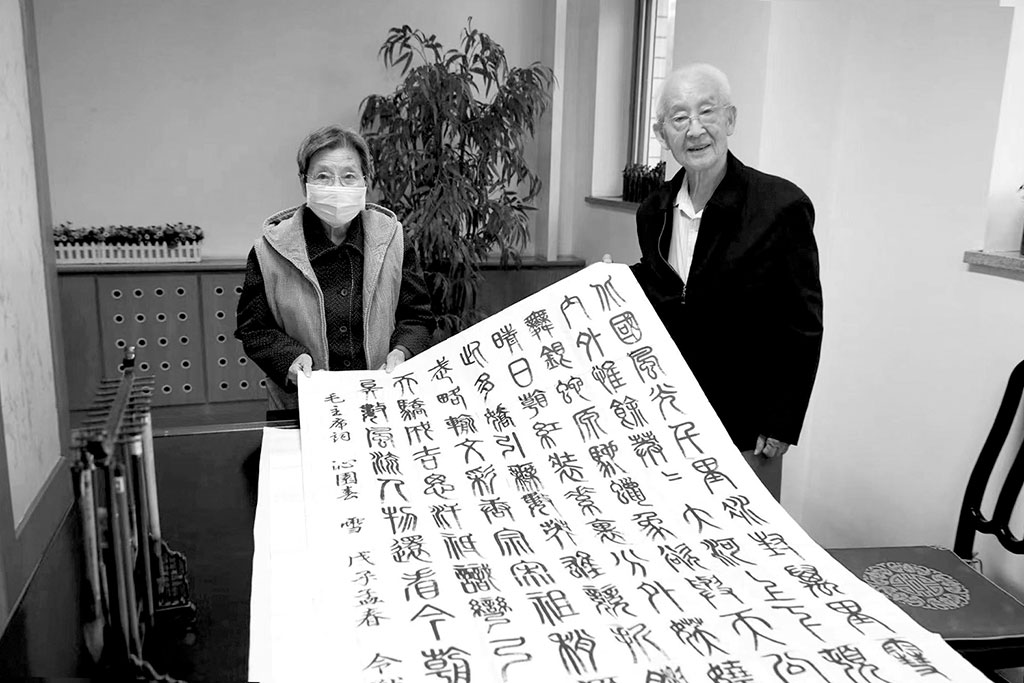 北國風光千里冰封萬里雪
內外惟餘莽二大河上下頓
舞銀蛇原馳蠟象欲與天公
晴日看紅裝素裹分外妖嬈
此多嬌引無數英雄競折
武略輸文彩唐宗宋祖稍
天驕成吉思汗祇識彎弓
矣數風流人物還看今朝
毛主席詞 沁園春 雪 戊子孟春 令